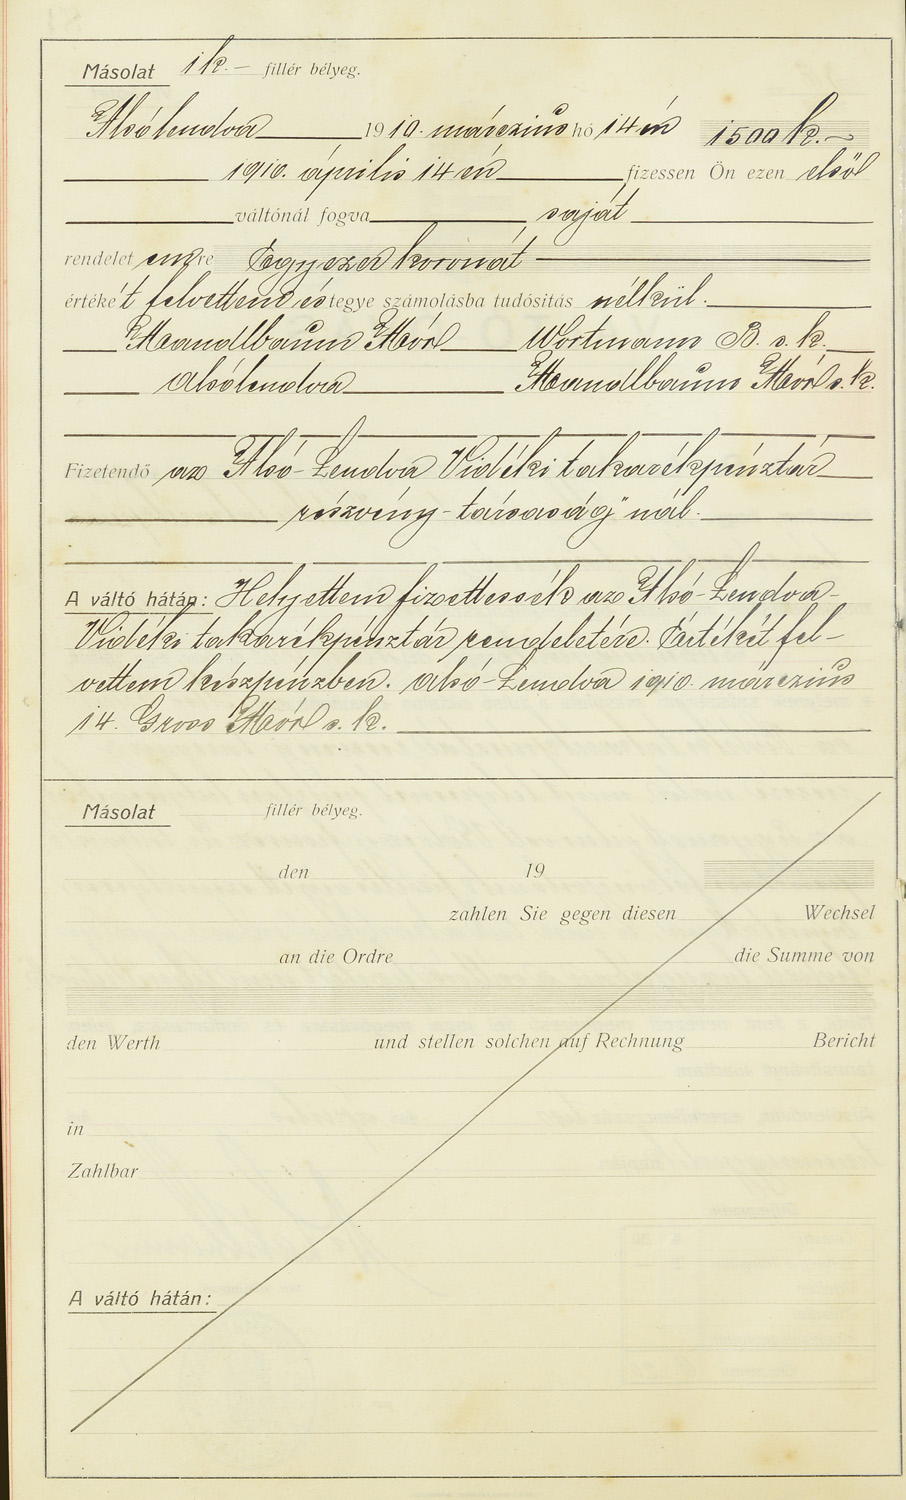 Másolat 1 k.– fillér bélyeg.
Alsólendva 1910. márczius hó 14 én 1500 k.–
1910. április 14 én fizessen Ön ezen első
váltónál fogva saját
rendelet emre Egyezer koronát
értéket felvettem és tegye számolásba tudósitás nélkül.
Mandlbaum Mór Wortmann B. s. k.
Alsólendva Mandlbaum Mór s. k.
Fizetendő az Alsó-Lendva Vidéki takarékpénztár
részvény-társaság" nál.
A váltó hátán: Helyettem fizettessék az Alsó-Lendva-
Vidéki takarékpénztár rendeletére. Értékét fel-
vettem készpénzben. Alsó-Lendva 1910. márczius
14. Gross Mór s. k.
Másolat fillér bélyeg.
den 19
zahlen Sie gegen diesen Wechsel
an die Ordre die Summe von
den Werth und stellen solchen auf Rechnung Bericht
in
Zahlbar
A váltó hátán: